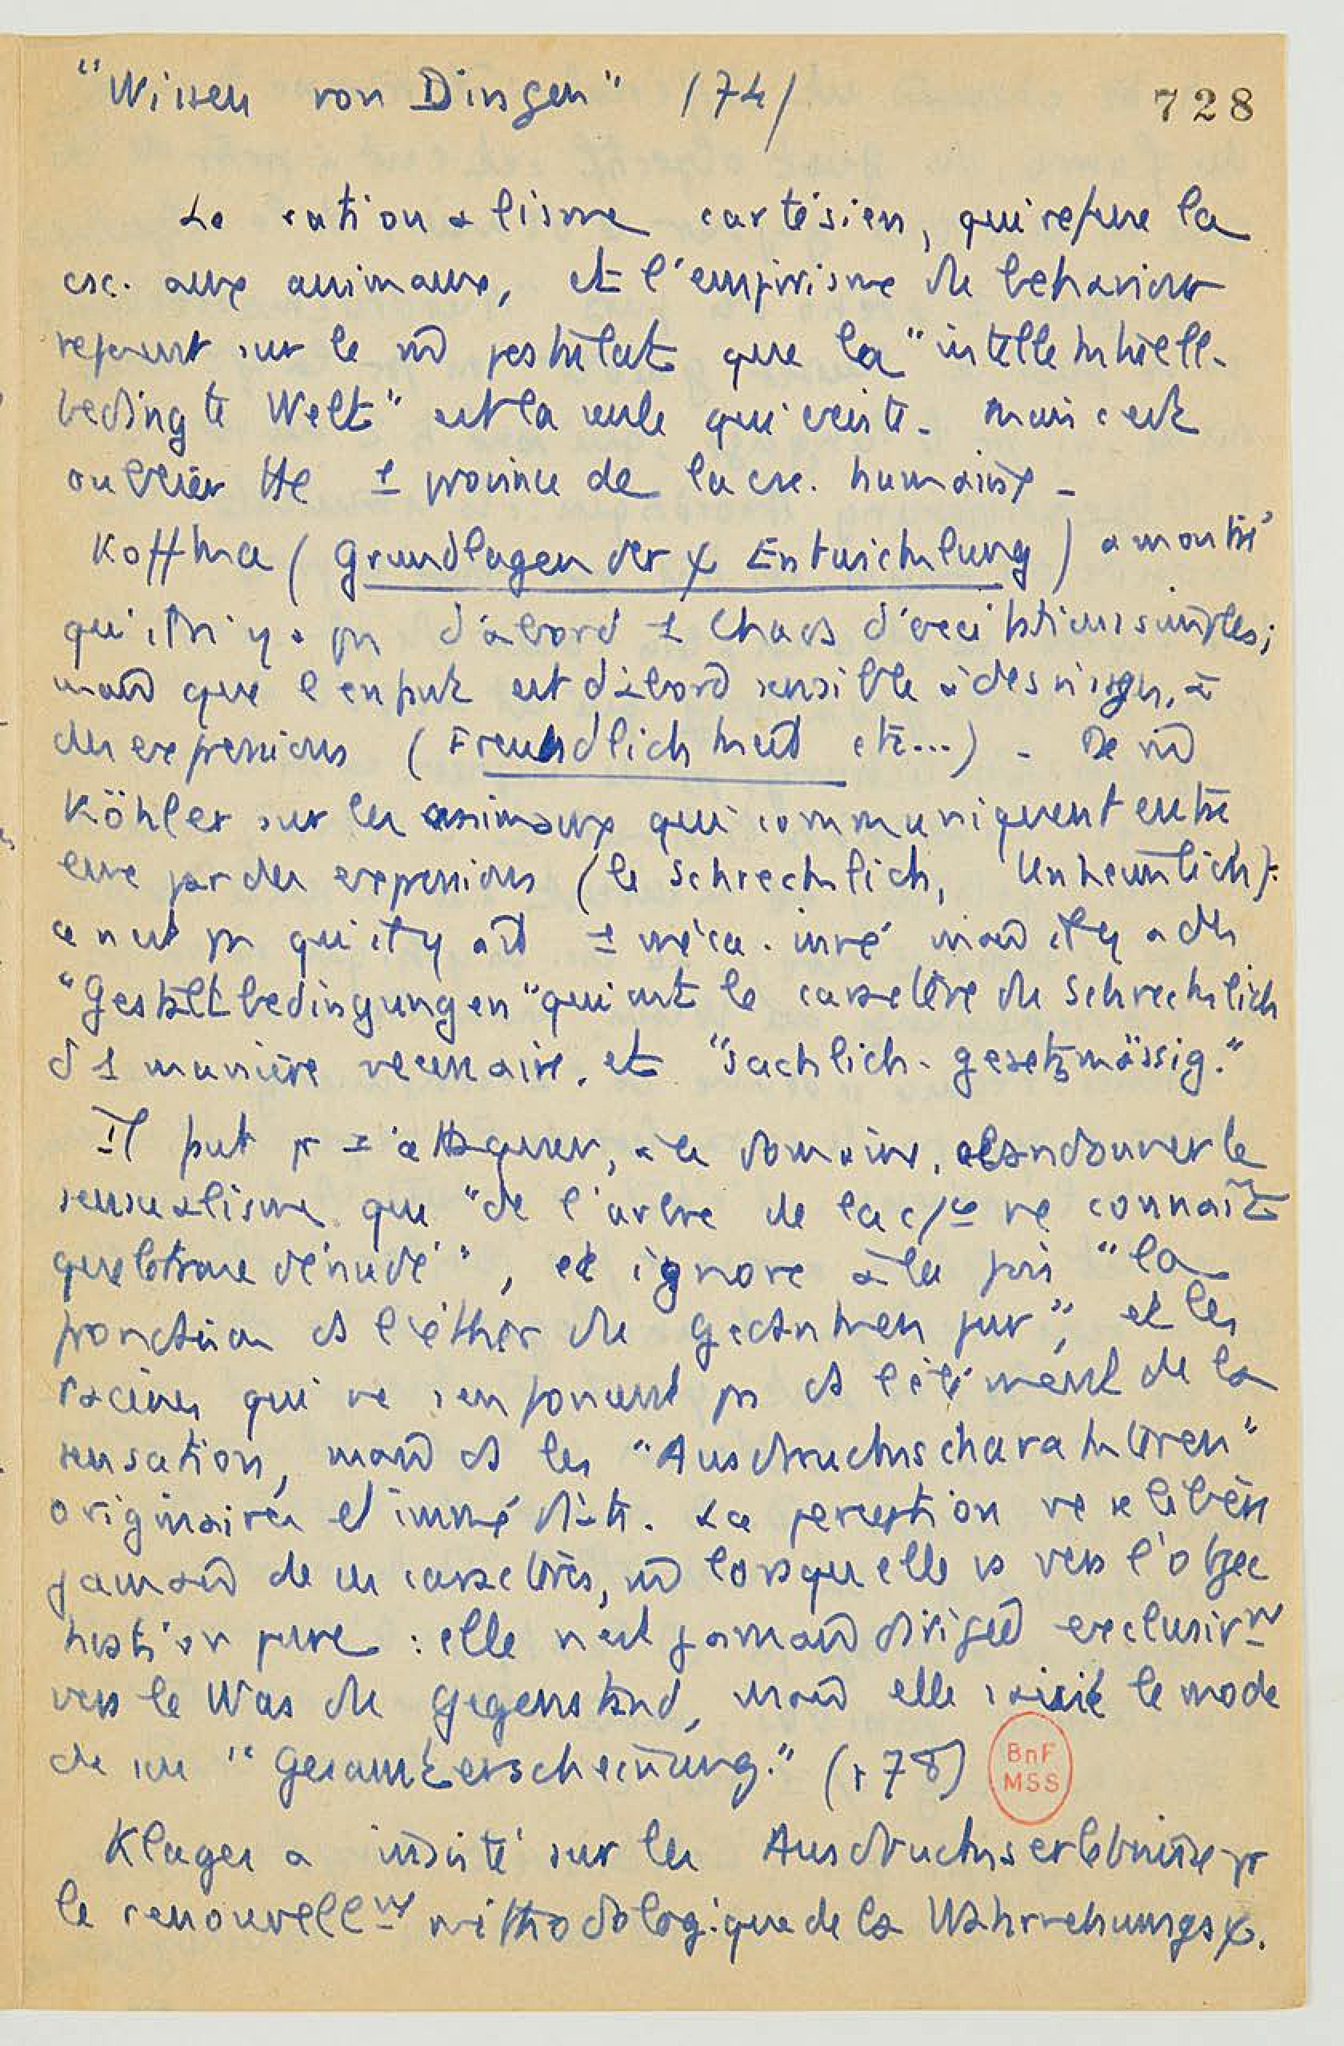 "Wissen von Dingen" (74)
728
Le rationalisme cartésien, qui refuse la
csc. aux animaux, et l'empirisme du behaviour
reposent sur le m̂ postulat que la "intellektuell-
bedingte Welt" est la seule qui existe. Mais c'est
oublier tte 1 province de la csc. humaine.
Koffka (Grundlagen der ψ Entwicklung) a montré
qu'il n'y a pas d'abord 1 chaos d'excitations simples;
mais que l'enfant est d'abord sensible à des visages, à
des expressions (Freundlichkeit etc...). De m̂
Köhler sur les animaux qui communiquent entre
eux par des expressions (le Schrecklich, Unheimlich):
ce n'est pas qu'il y ait 1 méca. inné mais il y a des
"Gestaltbedingungen" qui ont le caractère du Schrecklich
d'1 manière nécessaire, et "sachlich-gesetzmässig."
Il faut pr s'attaquer, à ce domaine, abandonner le
sensualisme qui "de l'arbre de la c/ce ne connaît
que le tronc dénudé", et ignore à la fois "la
frondaison ds l'éther du Gedanken pur", et les
racines qui ne s'enfoncent pas ds l'élément de la
sensation, mais ds les "Ausdruckscharakteren"
originaires et immédiats. La perception ne se libère
jamais de ces caractères, m̂ lorsqu'elle va vers l'objec
tivation pure : elle n'est jamais dirigée exclusivt
vers le Was du Gegenstand, mais elle saisit le mode
de son "Gesamterscheinung." (p 78)
BnF
MSS
Klages a insisté sur les Ausdruckserlebnisse pr
le renouvellt méthodologique de la Wahrnehmungsψ.